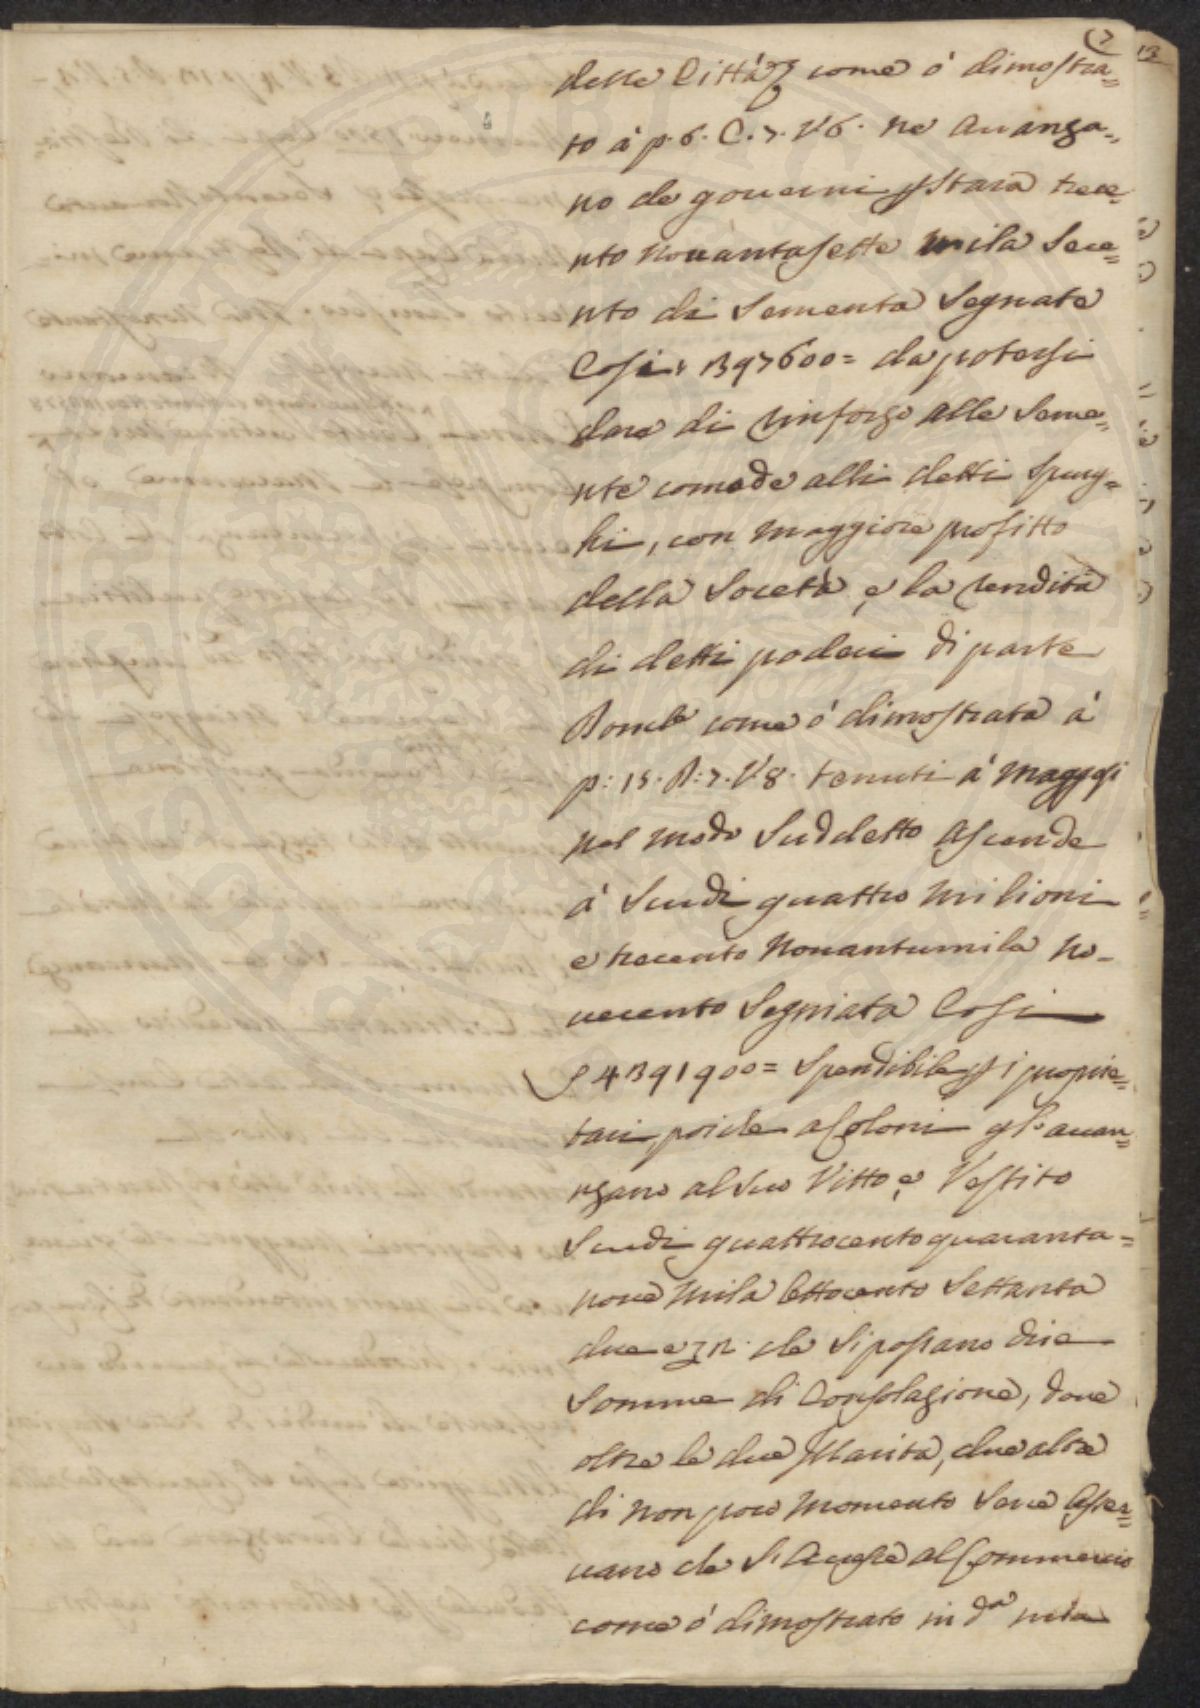 delle Città, come ò dimostra=
to à p. 6. C. 7. V 6. ne auanza=
no de gouerni Stara trece=
nto nouantasette mila Sece=
nto di Sementa Segnate
Cosi: 397600= da potersi
dare di rinforzo alle Seme=
nte comode alli detti Spung=
hi, con maggiore profitto
della Società, e la rendita
di detti poderi di parte
come ò dimostrata à
p: 15. R: 7. V 8. tenuti à maggesi
nel modo Suddetto Ascende
à Scudi quattro milioni
e trecento Nouantumila No=
uecento Segniata Cosi
S 4391900= Spendibile i proprie=
tari, poiche a Coloni gl' auan=
zano al suo Vitto e Vestito
Scudi quattrocentoquaranta=
noue mila Ottocento Settanta
due e che Si possano dire
Somme di Consolazione, doue
oltre le due Marita, due altre
di non poco momento Sene Osser=
uano che S' Acresce al Commercio
come ò dimostrato in d.a nota